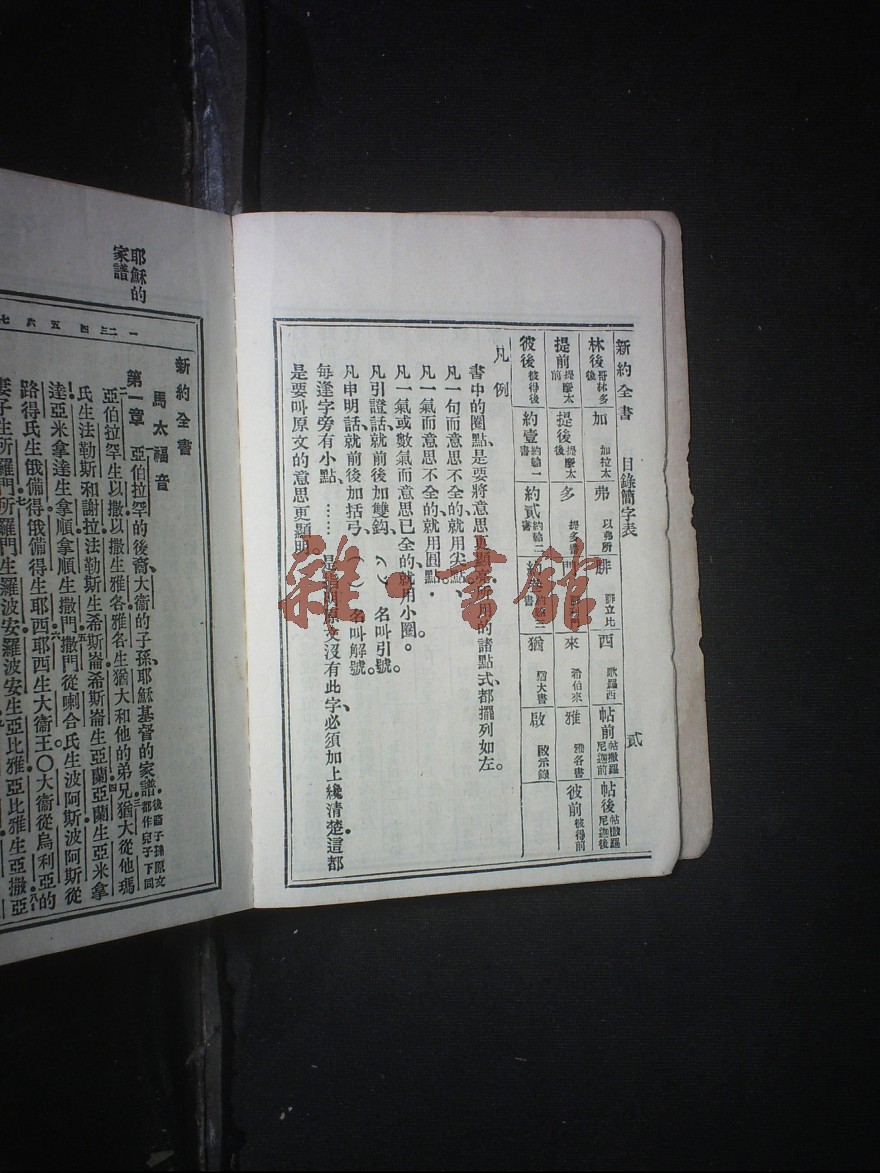 新約全書 目錄簡字表 貳
林後 哥林多後 加 加拉太 弗 以弗所 腓 腓立比 西 歌羅西 帖前 帖撒羅尼迦前 帖後 帖撒羅尼迦後
提前 提摩太前 提後 提摩太後 多 提多書 門 來 希伯來 雅 雅各書 彼前 彼得前
彼後 彼得後 約壹 約翰一書 約貳 約翰二書 約叁 猶 猶大書 啟 啟示錄
凡例
書中的圈點、是要將意思更顯亮、所用的諸點式、都擺列如左。
凡一句而意思不全的、就用尖點、
凡一氣而意思不全的、就用圓點．
凡一氣或數氣而意思已全的、就用小圈。
凡引證話、就前後加雙鈎、 名叫引號。
凡申明話、就前後加括弓、（ ） 名叫解號。
每逢字旁有小點、…… 是指明原文沒有此字、必須加上纔清楚。這都
是要叫原文的意思更顯明。
耶穌的
家譜
一 二 三 四 五 六 七
新約全書
馬太福音
第一章 亞伯拉罕的後裔、大衛的子孫耶穌基督的家譜．後裔子孫原文都作兒子下同
二亞伯拉罕生以撒．以撒生雅各．雅各生猶大和他的弟兄．三猶大從他瑪
氏生法勒斯和謝拉．法勒斯生希斯崙．希斯崙生亞蘭．四亞蘭生亞米拿
達．亞米拿達生拿順．拿順生撒門．五撒門從喇合氏生波阿斯．波阿斯從
路得氏生俄備得．俄備得生耶西．六耶西生大衛王。〇大衛從烏利亞的
妻子生所羅門．七所羅門生羅波安．羅波安生亞比雅．亞比雅生亞撒．八亞
雜·書館